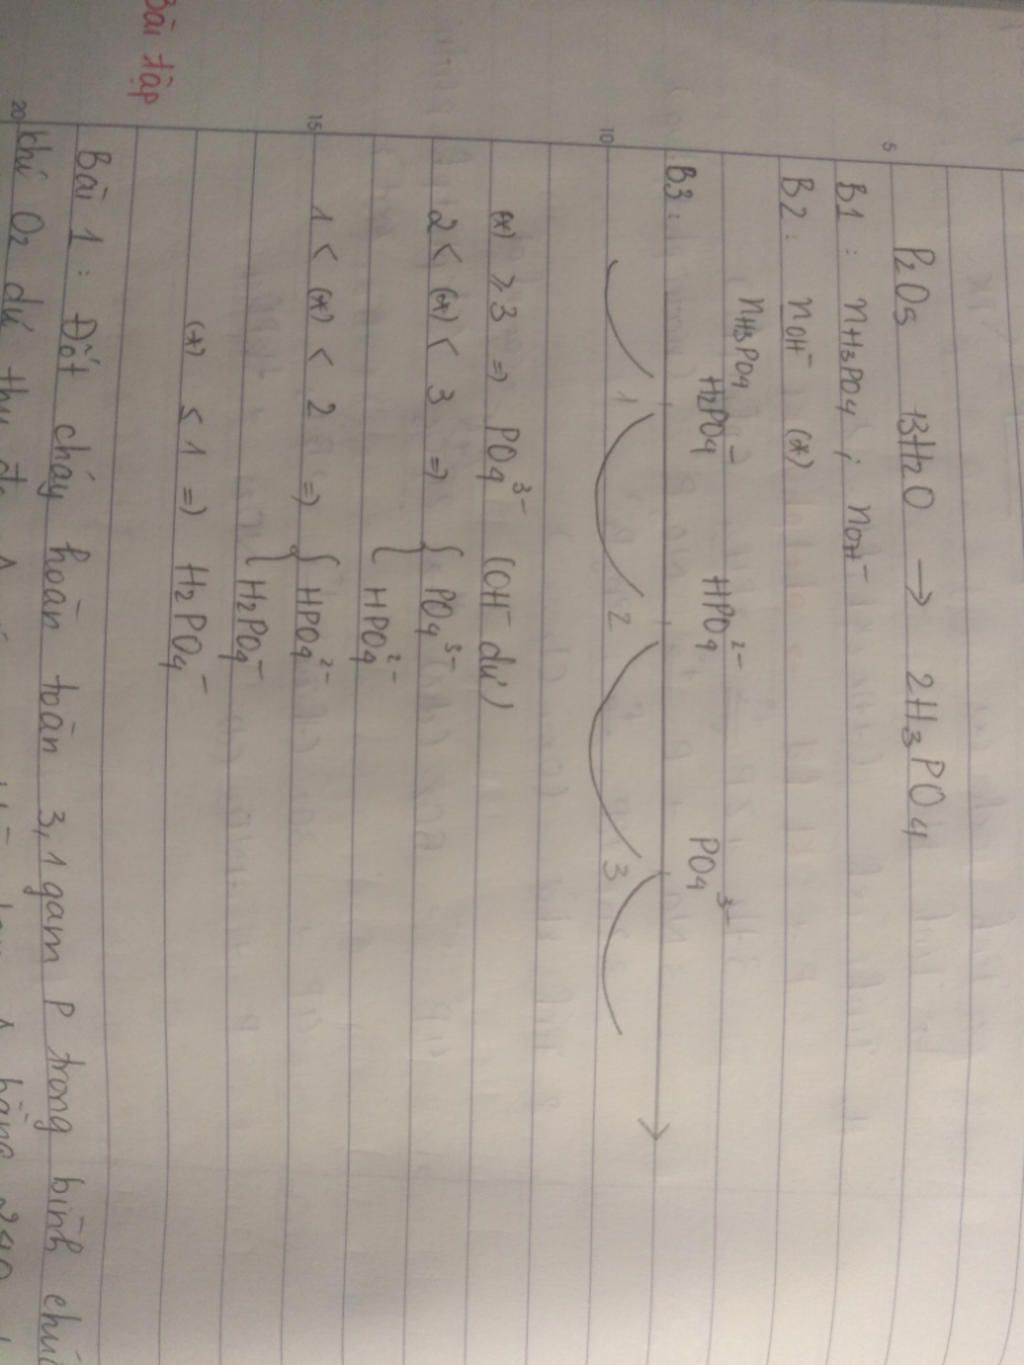 P2O5 + 3H2O → 2H3PO4
B1 : nH3PO4 ; nOH⁻
B2 : nOH⁻ (*)
nH3PO4
H2PO4⁻ HPO4²⁻ PO4³⁻
B3 :
1 2 3
(*) ⩾ 3 => PO4³⁻ (OH⁻ dư)
2 < (*) < 3 => { PO4³⁻
{ HPO4²⁻
1 < (*) < 2 => { HPO4²⁻
{ H2PO4⁻
(*) ≤ 1 => H2PO4⁻
Bài tập
Bài 1 : Đốt cháy hoàn toàn 3,1 gam P trong bình
khí O2 dư thu
5
10
15
20